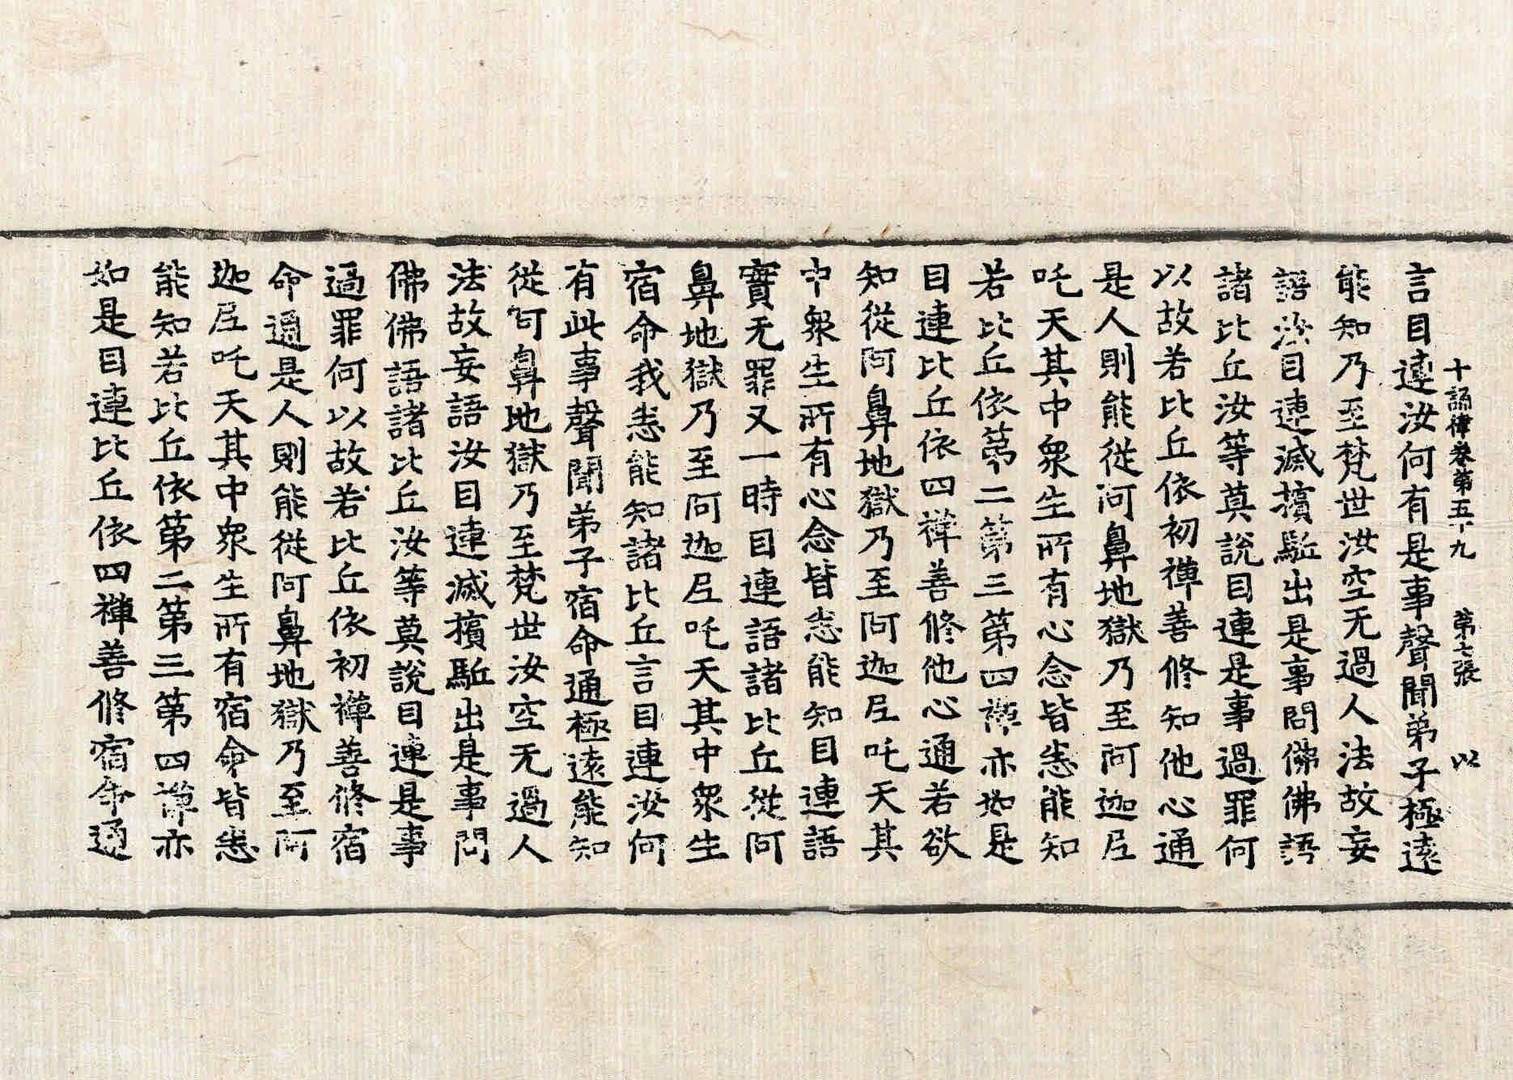 十誦律卷第五十九 第七張 以
言目連汝何有是事聲聞弟子極遠
能知乃至梵世汝空无過人法故妄
語汝目連滅擯駈出是事問佛佛語
諸比丘汝等莫說目連是事過罪何
以故若比丘依初禪善修知他心通
是人則能從阿鼻地獄乃至阿迦尼
吒天其中衆生所有心念皆悉能知
若比丘依第二第三第四禪亦如是
目連比丘依四禪善修他心通若欲
知從阿鼻地獄乃至阿迦尼吒天其
中衆生所有心念皆悉能知目連語
實无罪又一時目連語諸比丘從阿
鼻地獄乃至阿迦尼吒天其中衆生
宿命我悉能知諸比丘言目連汝何
有此事聲聞弟子宿命通極遠能知
從阿鼻地獄乃至梵世汝空无過人
法故妄語汝目連滅擯駈出是事問
佛佛語諸比丘汝等莫說目連是事
過罪何以故若比丘依初禪善修宿
命通是人則能從阿鼻地獄乃至阿
迦尼吒天其中衆生所有宿命皆悉
能知若比丘依第二第三第四禪亦
如是目連比丘依四禪善修宿命通